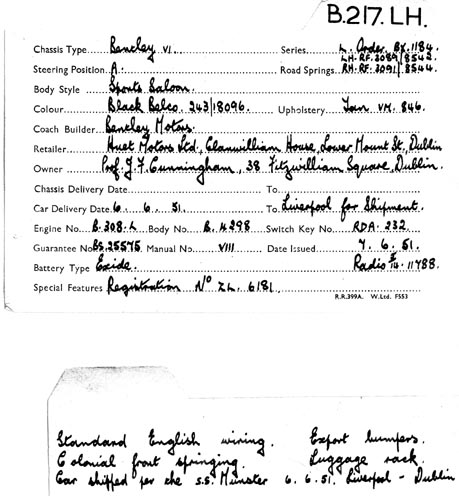 B.217.LH.
Chassis Type Bentley VI. Series L. Order. BX.1184.
LH-RF.3089/8542.
Steering Position A. Road Springs RH-RF.3091/8544.
Body Style Sports Saloon.
Colour Black Belco. 243/18096. Upholstery Tan VM. 846.
Coach Builder Bentley Motors.
Retailer Huet Motors Ltd, Clanwilliam House, Lower Mount St. Dublin
Owner Prof. J. F. Cunningham, 38 Fitzwilliam Square, Dublin.
Chassis Delivery Date To
Car Delivery Date 6. 6. 51. To Liverpool for Shipment.
Engine No B.308.L Body No B.4298 Switch Key No RDA.232
Guarantee No BS.25575 Manual No VIII Date Issued 7. 6. 51.
Battery Type Exide. Radio 14.11788.
Special Features Registration No ZL. 6181
R.R.399A. W.Ltd. F553
Standard English wiring. Export bumpers.
Colonial front springing. Luggage rack.
Car shipped per the s.s. Munster 6.6.51. Liverpool - Dublin